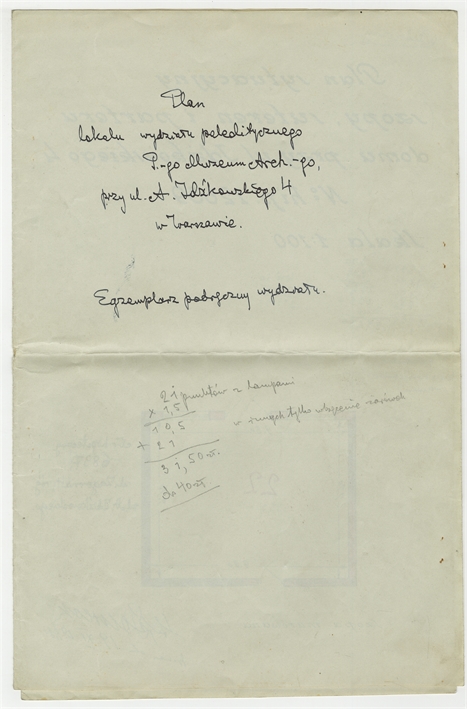 Plan
lokalu wydziału paleolitycznego
P.-go Muzeum Arch.-go,
przy ul. A. Idźkowskiego 4
w Warszawie.
Egzemplarz podręczny wydziału.
21 punktów z lampami
x 1,51
10,5
+ 21
31,50 zł.
do 40 zł
w innych tylko włączenie